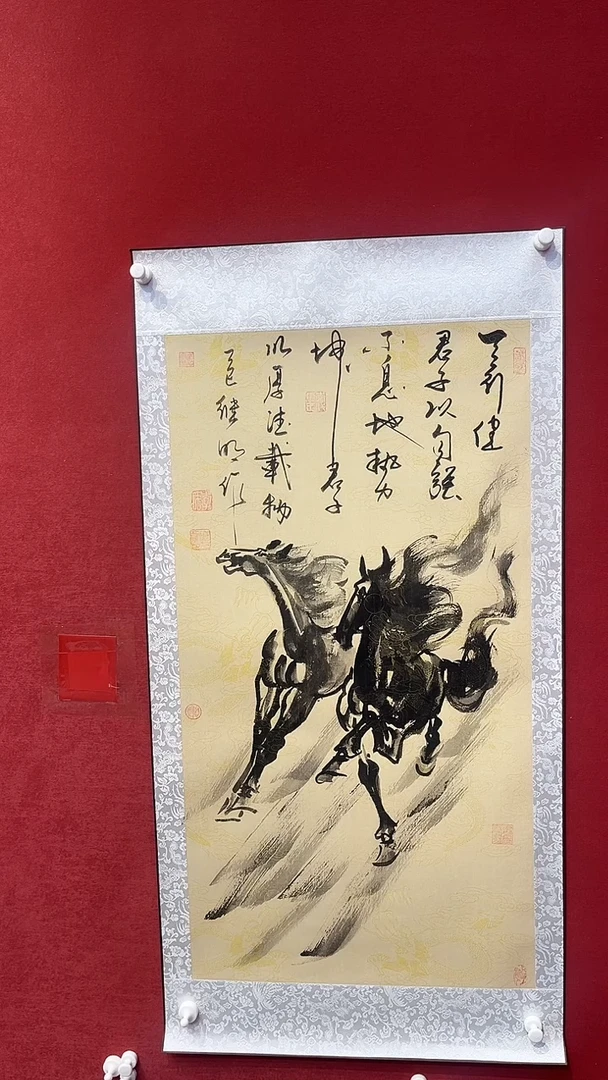 天行健
君子以自强
不息地势
坤君子
以厚德載物
乙巳 明作